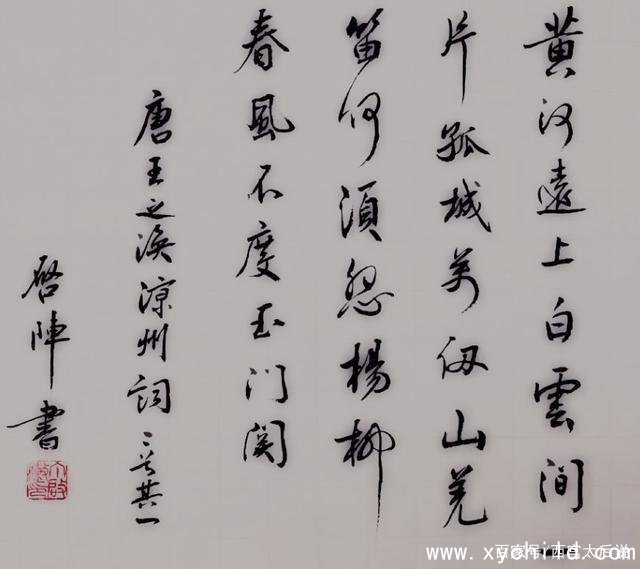 黄河遠上白雲間
片孤城萬仞山羌
笛何須怨楊柳
春風不度玉门関
唐王之渙凉州詞二首其一
啓陣書